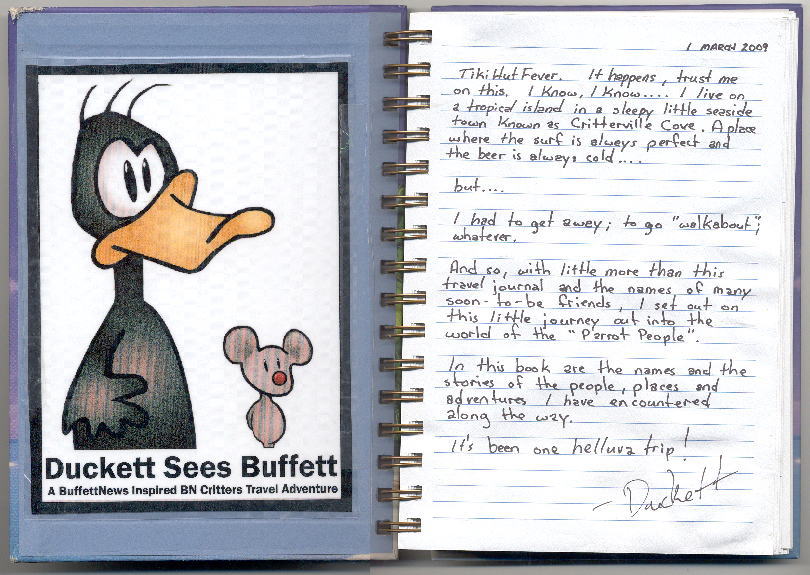 Duckett Sees Buffett
A BuffettNews Inspired BN Critters Travel Adventure
1 MARCH 2009
Tiki Hut Fever. It happens, trust me
on this. I know, I know.... I live on
a tropical island in a sleepy little seaside
town known as Critterville Cove. A place
where the surf is always perfect and
the beer is always cold....
but....
I had to get away; to go "walkabout";
whatever.
And so, with little more than this
travel journal and the names of many
soon-to-be friends, I set out on
this little journey out into the
world of the "Parrot People".
In this book are the names and the
stories of the people, places and
adventures I have encountered
along the way.
It's been one helluva trip!
- Duckett